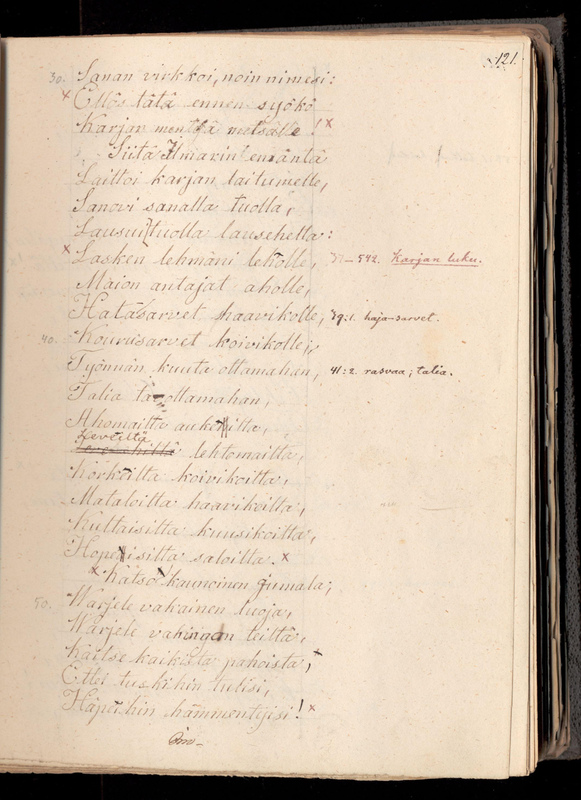 121.
30. Sanan virkkoi, noin nimesi:
× Ellös tätä ennen syökö
Karjan mentyä metsälle! ×
Siitä Ilmarin emäntä
Laittoi karjan laitumelle,
Sanovi sanalla tuolla,
Lausui tuolla lausehella:
× Lasken lehmäni leholle, 37–542. Karjan luku.
Maion antajat aholle,
Hatasarvet haavikolle, 39:1. haja-sarvet.
40. Kourusarvet koivikolle;
Työnnän kuuta ottamahan, 41:2. rasvaa; talia.
Talia ottamahan,
Ahomailta aukeilta,
Leveiltä lehtomailta,
Korkeilta koivikoilta,
Mataloilta haavikoilta,
Kultaisilta kuusikoilta,
Hopeisilta saloilta. ×
× Katso kaunoinen Jumala,
50. Warjele vakainen luoja,
Warjele vahingon teiltä,
Kaitse kaikista pahoista,
Ettei tuskihin tulisi,
Häpeihin hämmentyisi! ×